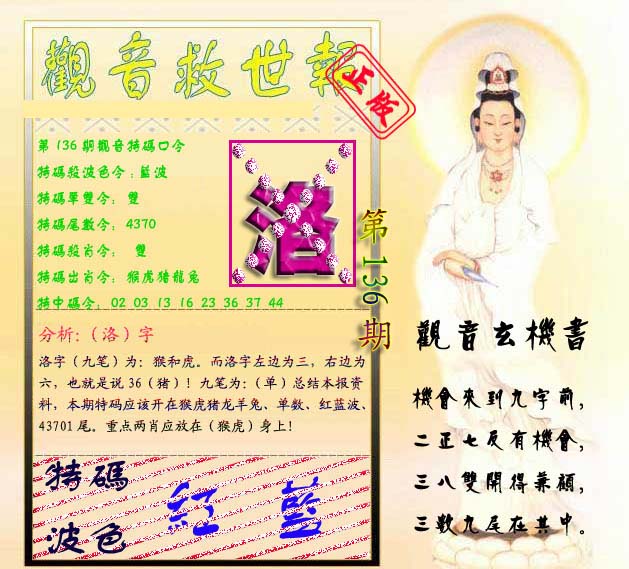 觀音救世報
正版
第136期觀音特碼口令
特碼殺波色令:藍波
特碼單雙令: 雙
特碼尾數令: 4370
特碼殺肖令: 雙
特碼出肖令: 猴虎猪龍兔
特中碼令: 02 03 13 16 23 36 37 44
洛
第136期
分析:（洛）字
洛字（九笔）为：猴和虎。而洛字左边为三，右边为
六，也就是说36（猪）！九笔为：（单）总结本报资
料，本期特码应该开在猴虎猪龙羊兔、单数、红蓝波、
43701尾。重点两肖应放在（猴虎）身上！
特碼
波色
紅 藍
觀音玄機書
機會來到九字前，
二正七反有機會，
三八雙開得兼顧，
三數九尾在其中。